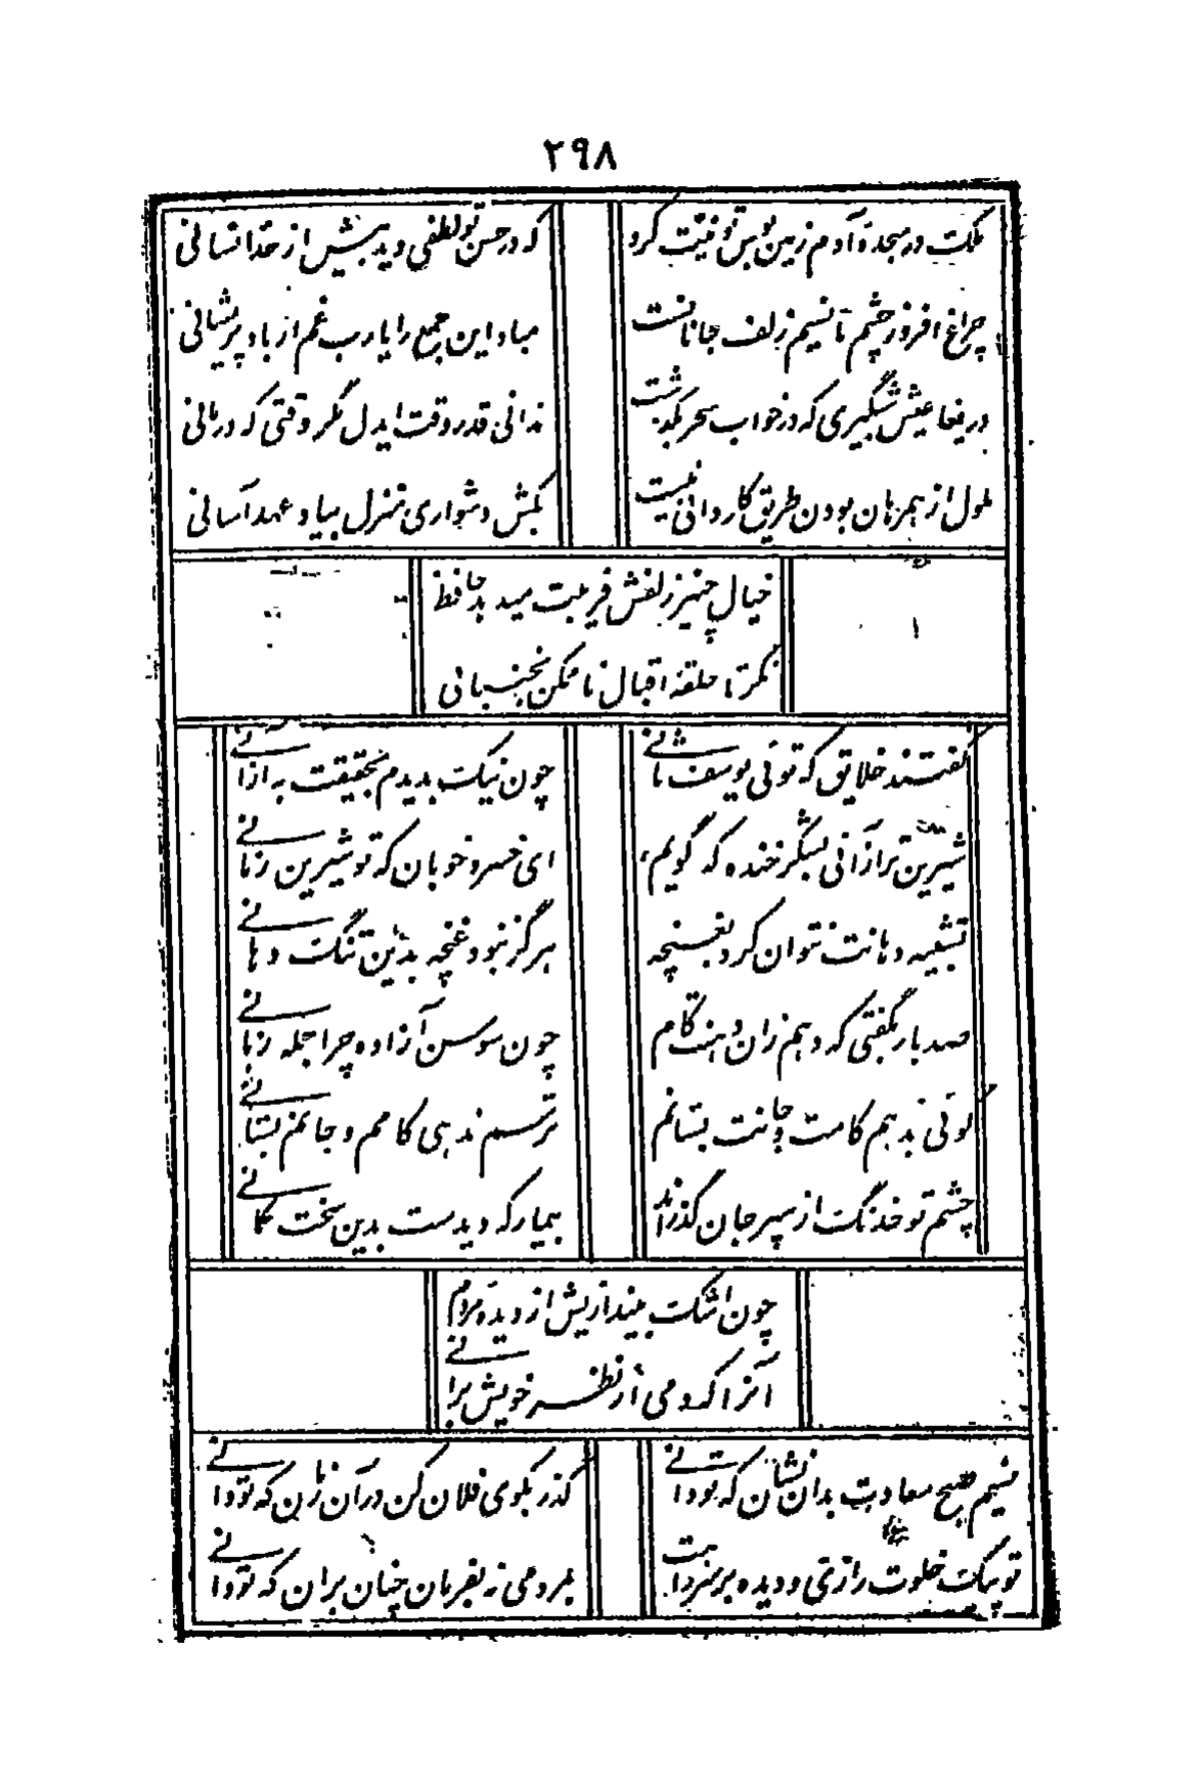 ۲۹۸
ملک در سجدهٔ آدم زمین بوس تو نیّت کرد
که در حسن تو لطفی دید بیش از حد انسانی
چراغ افروز چشم ما نسیم زلف جانانست
مباد این جمع را یارب غم از باد پریشانی
دریغا عیش شبگیری که در خواب سحر بگذشت
ندانی قدر وقت ایدل مگر وقتی که درمانی
ملول از همرهان بودن طریق کاردانی نیست
بکش دشواری منزل بیاد عهد آسانی
خیال چنبر زلفش فریبت میدهد حافظ
نگر تا حلقهٔ اقبال ناممکن نجنبانی
گفتند خلایق که توئی یوسف ثانی
چون نیک بدیدم بحقیقت به ازانی
شیرین‌تر ازآنی بشکر خنده که گویم
ای خسرو خوبان که تو شیرین زمانی
تشبیه دهانت نتوان کرد بغنچه
هرگز نبود غنچه بدین تنگ دهانی
صد بار بگفتی که دهم زان دهنت کام
چون سوسن آزاده چرا جمله زبانی
گوئی بدهم کامت و جانت بستانم
ترسم ندهی کامم و جانم بستانی
چشم تو خدنگ از سپر جان گذراند
بیمار که دیدست بدین سخت کمانی
چون اشک بیندازیش از دیدهٔ مردم
آنرا که دمی از نظر خویش برانی
نسیم صبح سعادت بدان نشان که تو دانی
گذر بکوی فلان کن در آن زمان که تو دانی
تو پیک خلوت رازی و دیده بر سر راهت
بمردمی نه بفرمان چنان بران که تو دانی